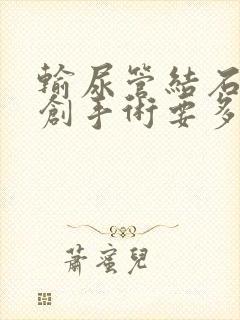 輸尿管結石
創手術要多
蕭蜜兒